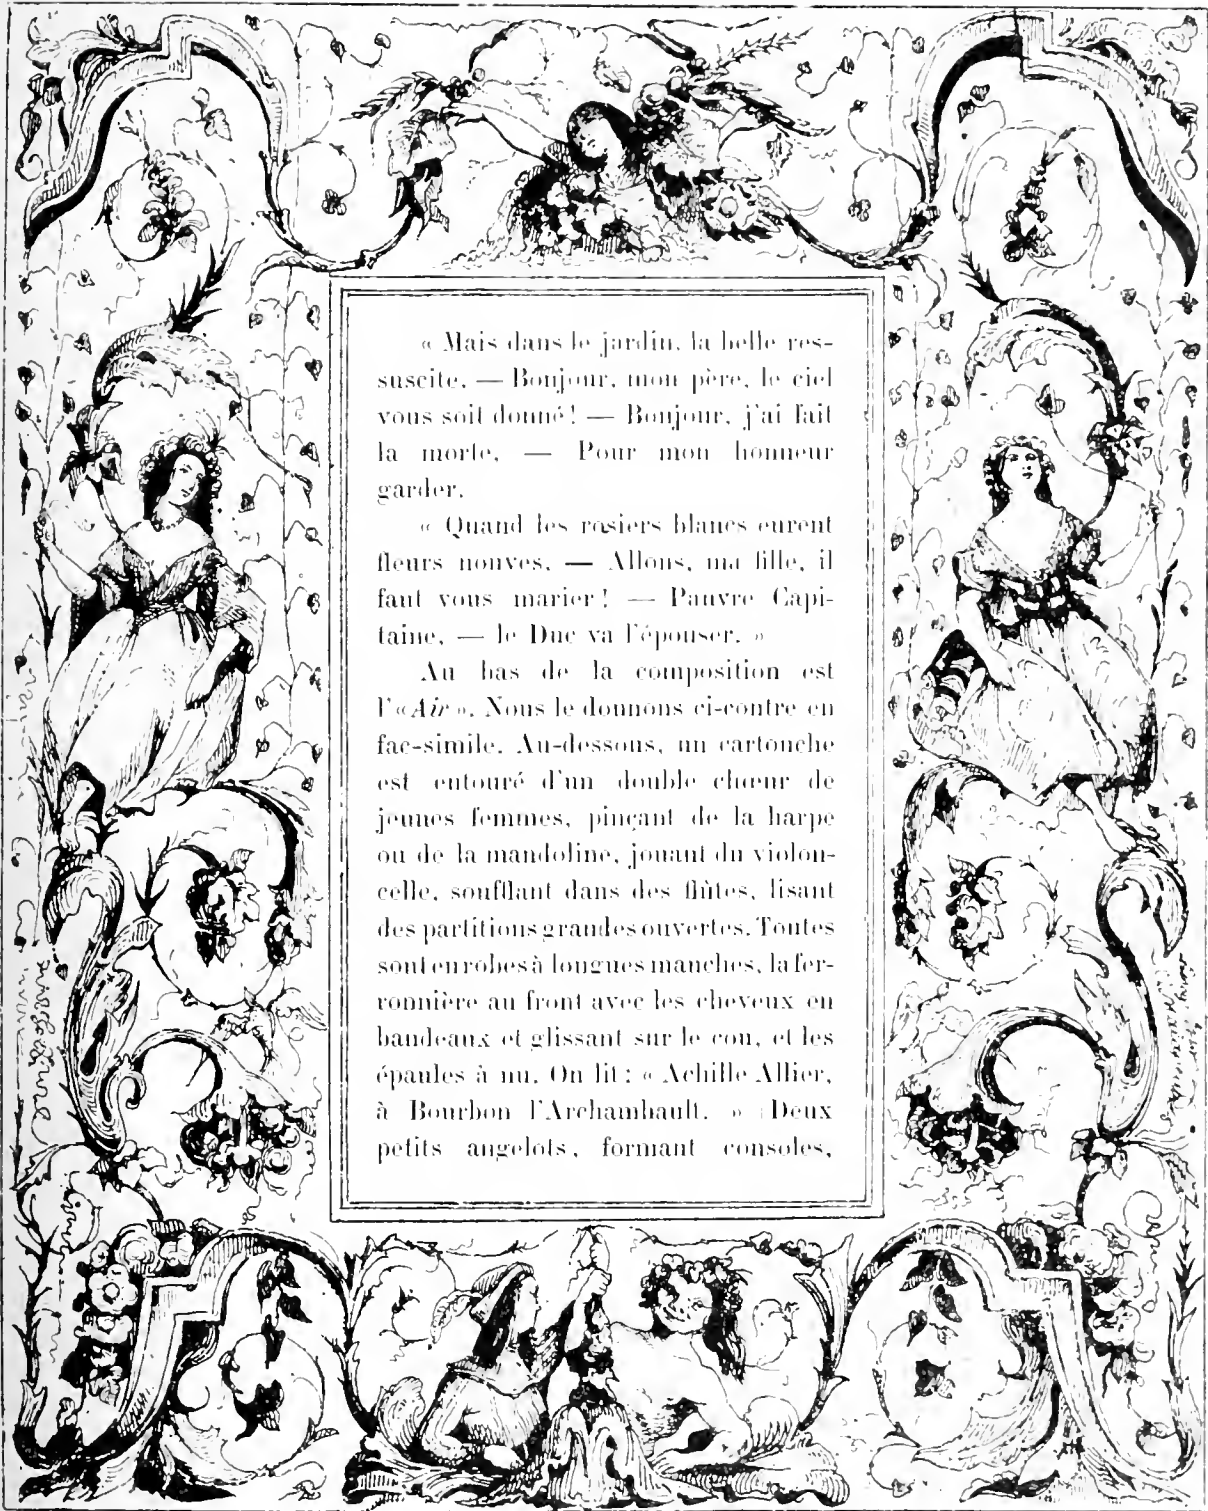 « Mais dans le jardin, la belle res-
suscite. — Bonjour, mon père, le ciel
vous soit donné! — Bonjour, j'ai fait
la morte, — Pour mon honneur
garder.
« Quand les rosiers blancs eurent
fleurs nouves, — Allons, ma fille, il
faut vous marier! — Pauvre Capi-
taine, — le Duc va l'épouser. »
Au bas de la composition est
l'«Air». Nous le donnons ci-contre en
fac-simile. Au-dessous, un cartouche
est entouré d'un double chœur de
jeunes femmes, pinçant de la harpe
ou de la mandoline, jouant du violon-
celle, soufflant dans des flûtes, lisant
des partitions grandes ouvertes. Toutes
sont en robes à longues manches, la fer-
ronnière au front avec les cheveux en
bandeaux et glissant sur le cou, et les
épaules à nu. On lit : « Achille Allier,
à Bourbon l'Archambault. » Deux
petits angelots, formant consoles,